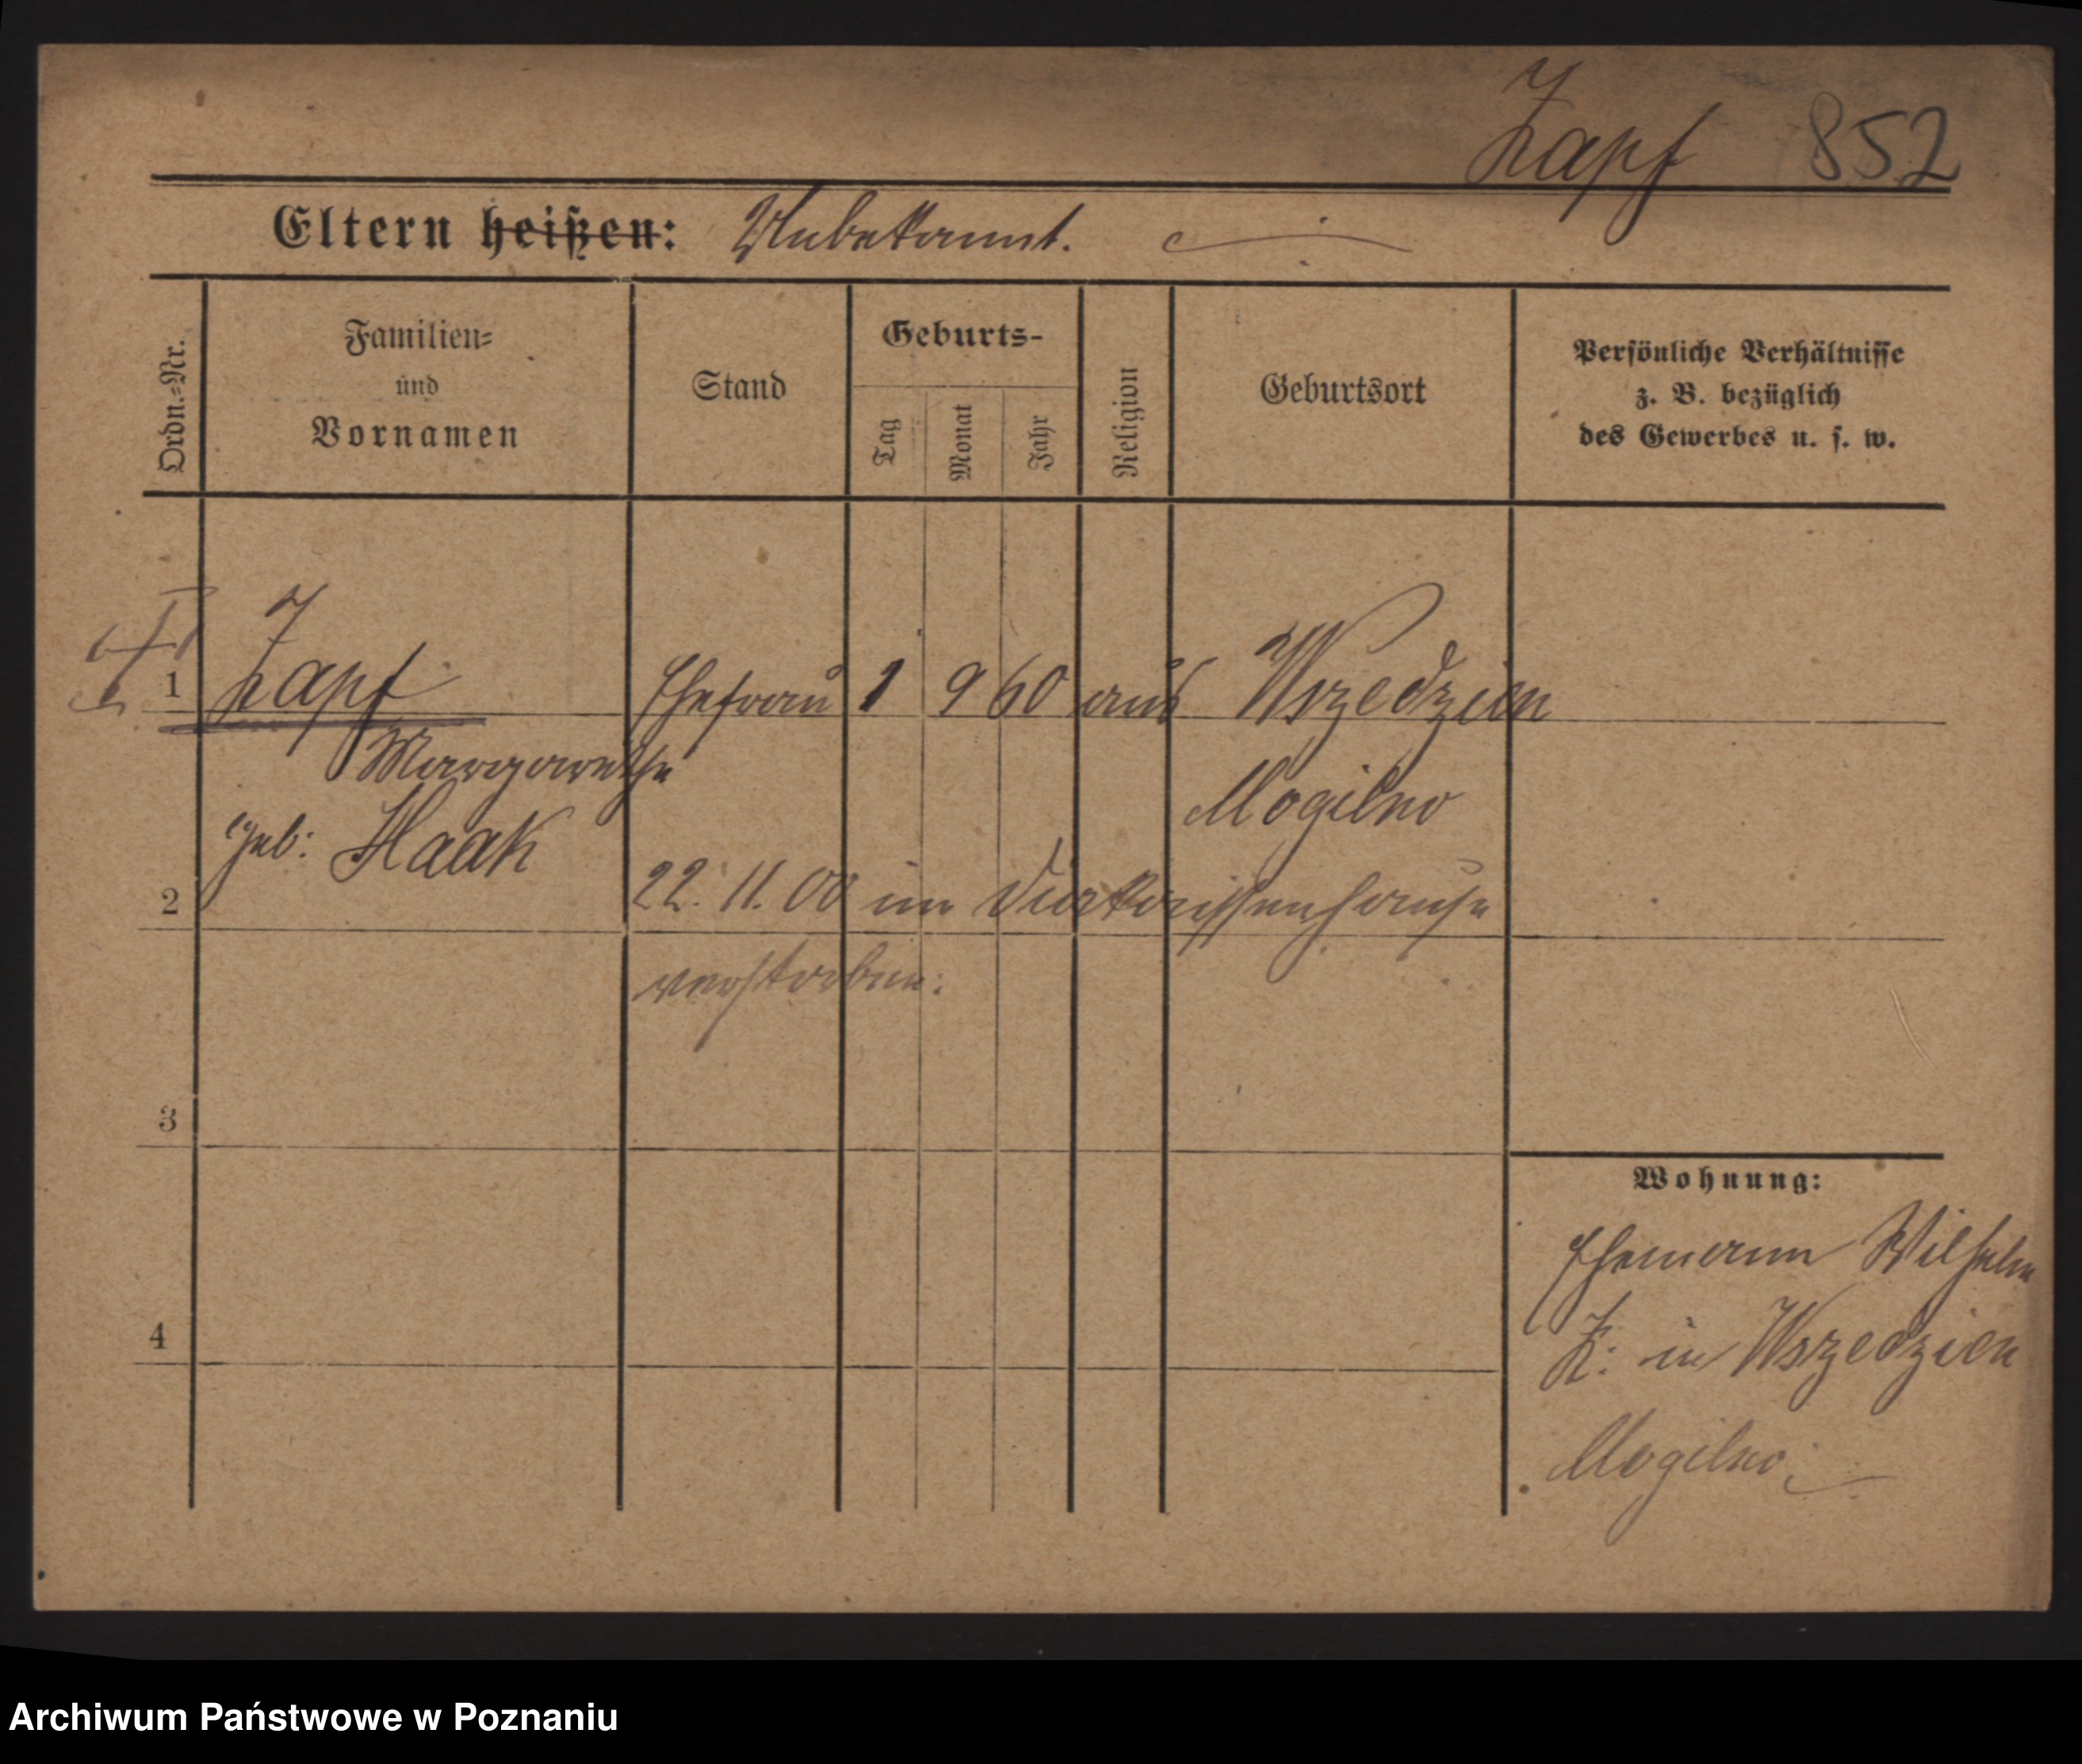 Zapf 852
Eltern heißen: Unbekannt.
Ordn.=Nr.
Familien=
und
Vornamen
Stand
Geburts-
Tag
Monat
Jahr
Religion
Geburtsort
Persönliche Verhältnisse
z. B. bezüglich
des Gewerbes u. s. w.
1 Zapf Ehefrau 1 9 60 aus Wszedzien
Margarethe Mogilno
geb: Haak
2 22. 11. 00 im Diakonissenhause
verstorben.
3
4
Wohnung:
Ehemann Wilhelm
Z. in Wszedzien
Mogilno.
Archiwum Państwowe w Poznaniu